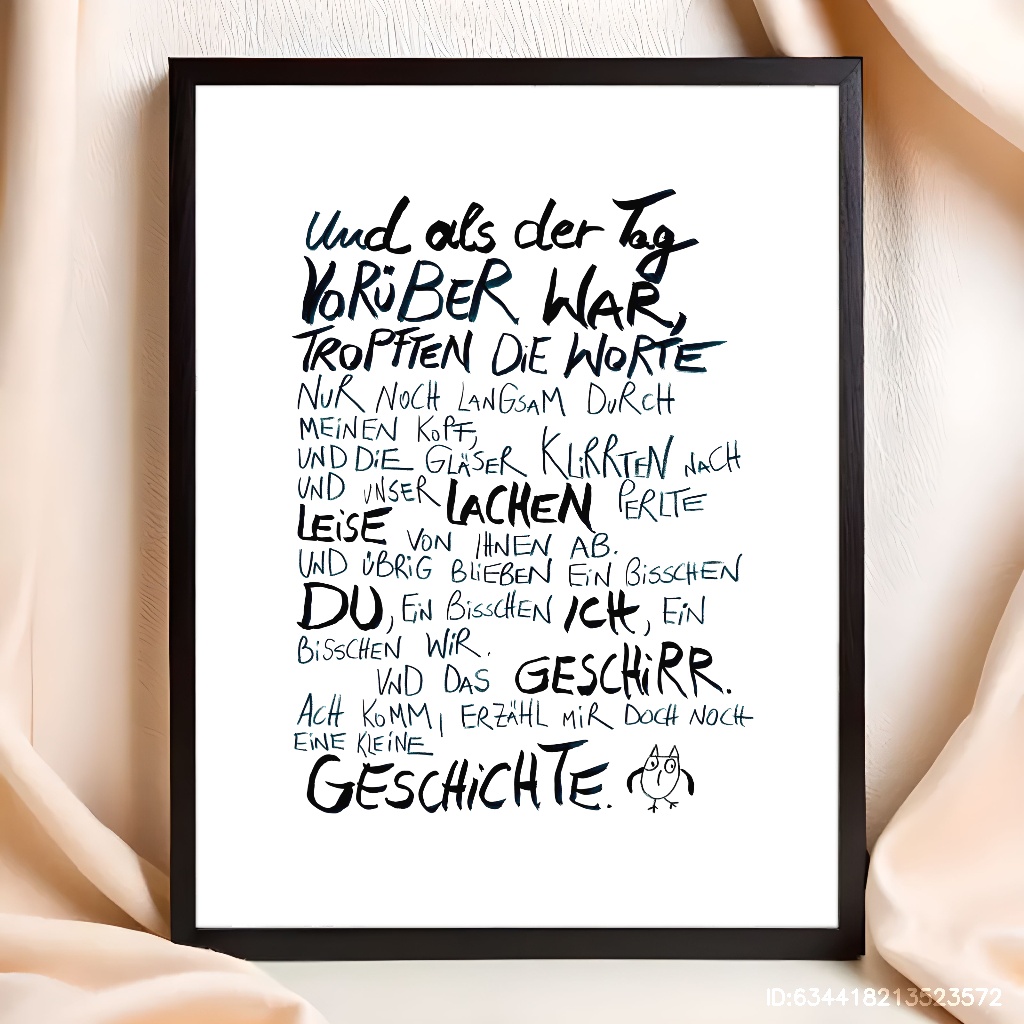 Und als der Tag
VORÜBER WAR,
TROPFTEN DIE WORTE
NUR NOCH LANGSAM DURCH
MEINEN KOPF,
UND DIE GLÄSER KLIRRTEN NACH
UND UNSER LACHEN PERLTE
LEISE VON IHNEN AB.
UND ÜBRIG BLIEBEN EIN BISSCHEN
DU, EIN BISSCHEN ICH, EIN
BISSCHEN WIR.
UND DAS GESCHIRR.
ACH KOMM, ERZÄHL MIR DOCH NOCH
EINE KLEINE
GESCHICHTE.
ID:634418213523572